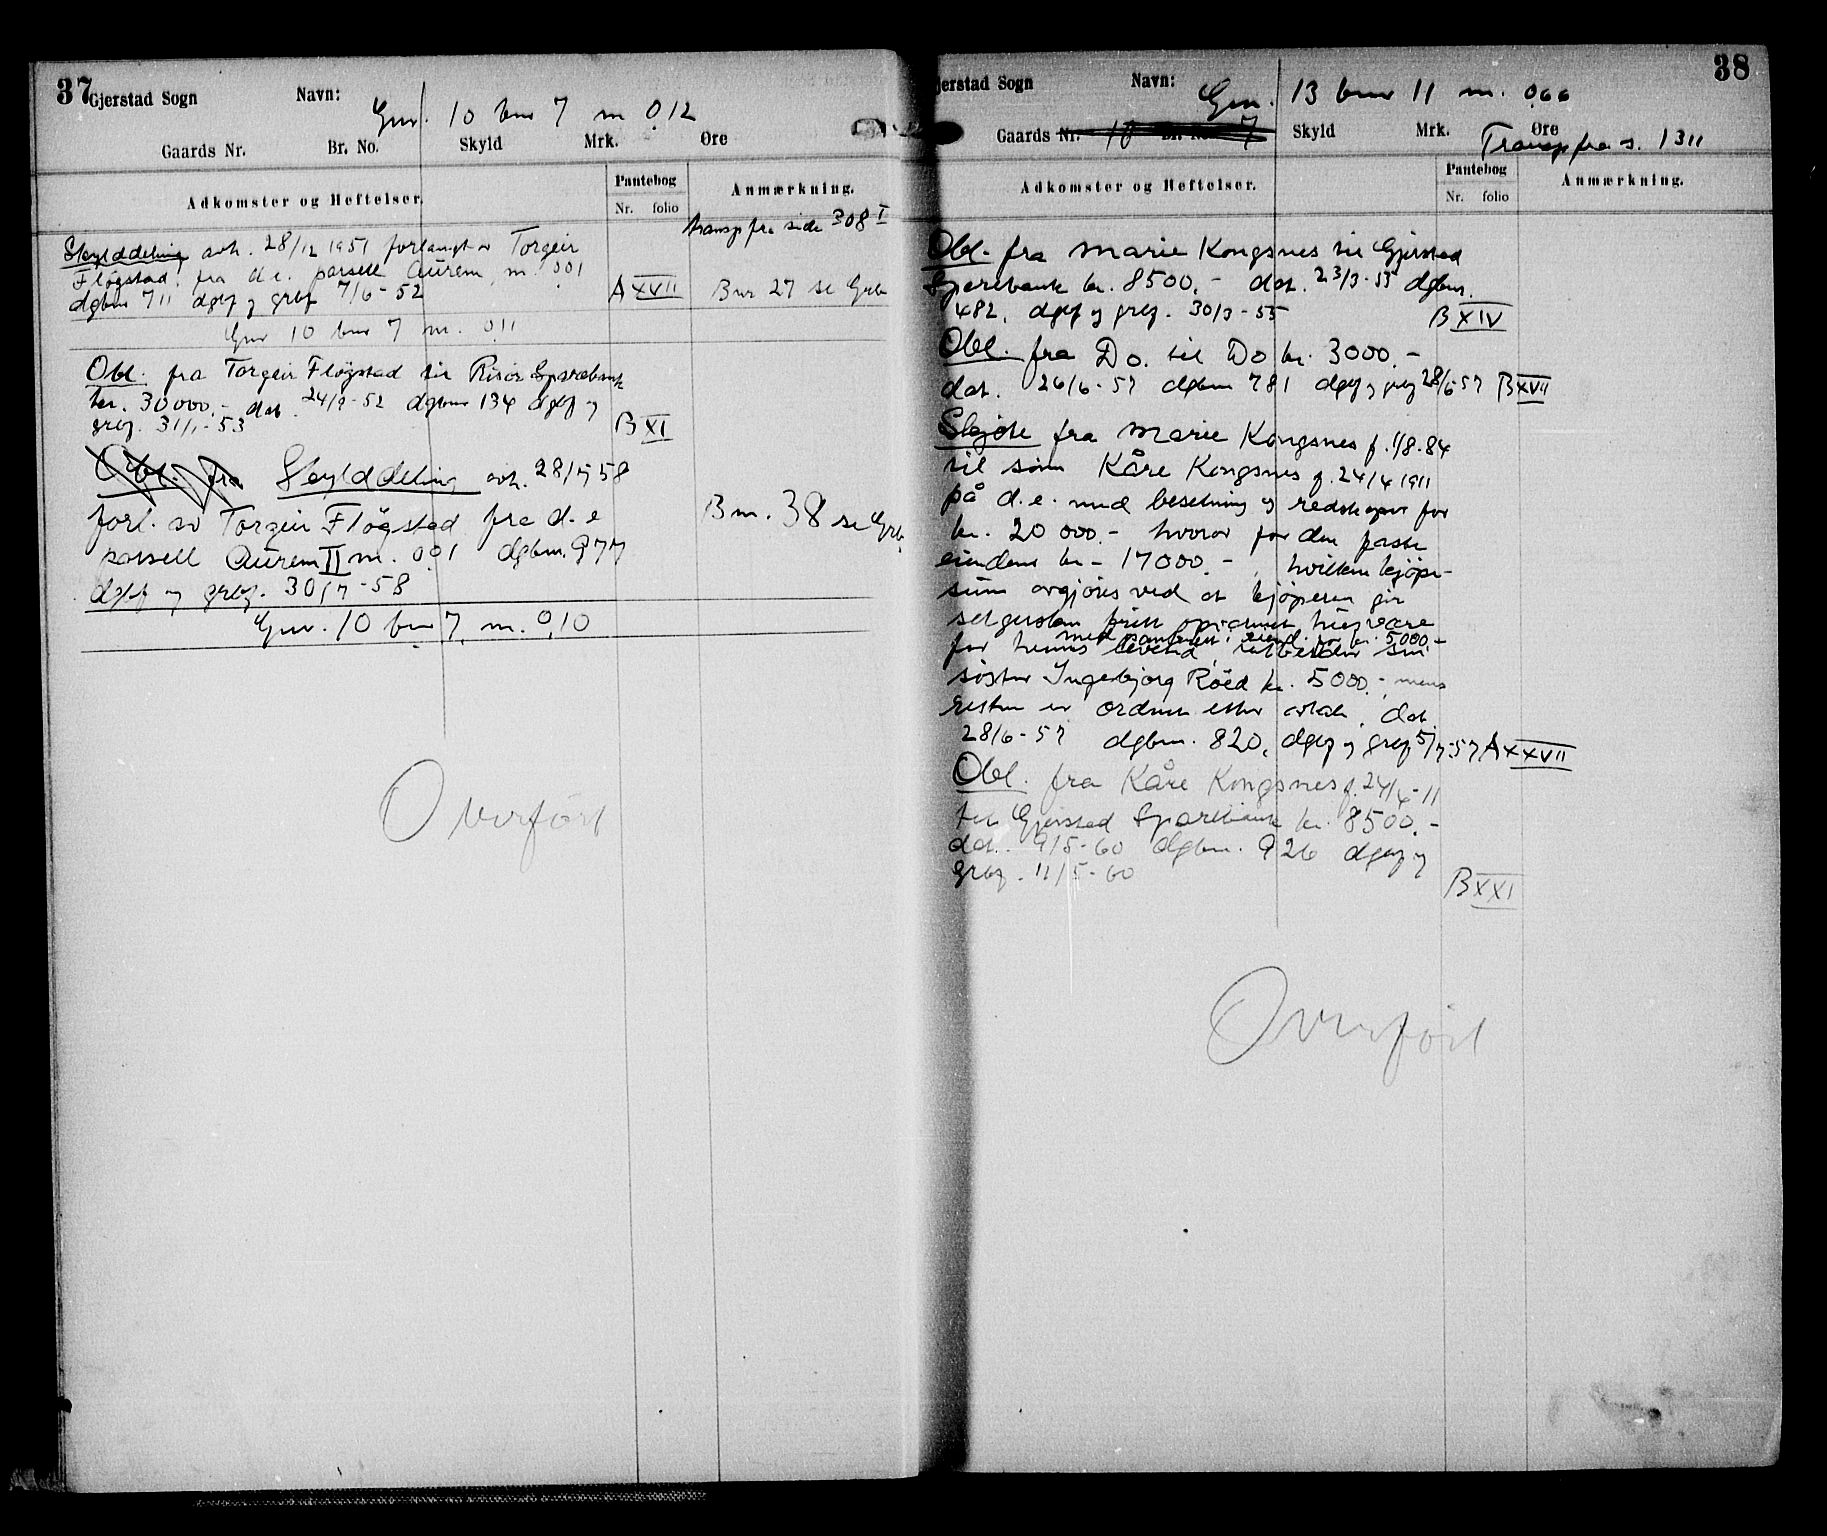 37
Gjerstad Sogn Navn:
Gnr. 10 bnr 7 m 0,12
Gaards Nr. Br. No. Skyld Mrk. Øre
Adkomster og Heftelser. Pantebog Anmærkning.
Nr. folio
transp fra side 308 I
Skylddeling avh. 28/12 1951 forlangt av Torgeir
Fløgstad, fra d.e. parsell Aurem, m. 001
dgbnr 711 dgbf og grbf 7/6-52 A XVII Bnr 27 se Grb
Gnr 10 bnr 7 m. 0,11
Obl. fra Torgeir Fløgstad til Risør Sparebank
kr. 30000.- dat. 24/9-52 dgbnr 134 dgbf og
grbf. 31/1-53 B XI
Obl. fra Skylddeling avh. 28/7 58
forl. av Torgeir Fløgstad fra d.e
parsell Aurem II m. 0,01 dgbnr. 977 Bnr. 38 se Grb.
dgbf og grbf. 30/7-58
Gnr. 10 bnr 7, m. 0,10
Overført
38
jerstad Sogn Navn:
Gnr. 13 bnr 11 m. 0,66
Gaards Nr. 10 Br. No. 7 Skyld Mrk. Øre
Transp fra s. 13 II
Adkomster og Heftelser. Pantebog Anmærkning.
Nr. folio
Obl. fra Marie Kongsnes til Gjerstad
Sparebank kr. 8500.- dat. 23/3-55 dgbnr.
482. dgbf og grbf. 30/3-55 B XIV
Obl. fra Do. til Do kr. 3000.-
dat. 26/6-57 dgbnr 781 dgbf og grbf 28/6 57 B XVII
Skjøte fra Marie Kongsnes f. 1/8.84
til sønn Kåre Kongsnes f. 24/4 1911
på d.e. med besetning og redskaper for
kr. 20 000.- hvorav for den faste
eiendom kr. 17000.-, hvilken kjøpe-
sum avgjøres ved at kjøperen gir
selgersken fritt opphold
med i eiend. for kr. 5000.-
for hennes levetid, utbetaler sin
søster Ingebjørg Røed kr. 5000.-, mens
resten er ordnet etter avtale, dat.
28/6-57 dgbnr. 820, dgbf og grbf 5/7-57 A XXVII
Obl. fra Kåre Kongsnes f. 24/4-11
til Gjerstad Sparebank kr. 8500.-
dat. 9/5-60 dgbnr. 926 dgbf og
grbf. 11/5-60 B XXI
Overført